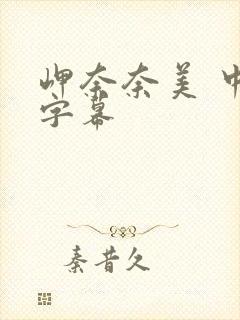 岬奈奈美 中
字幕
秦昔久